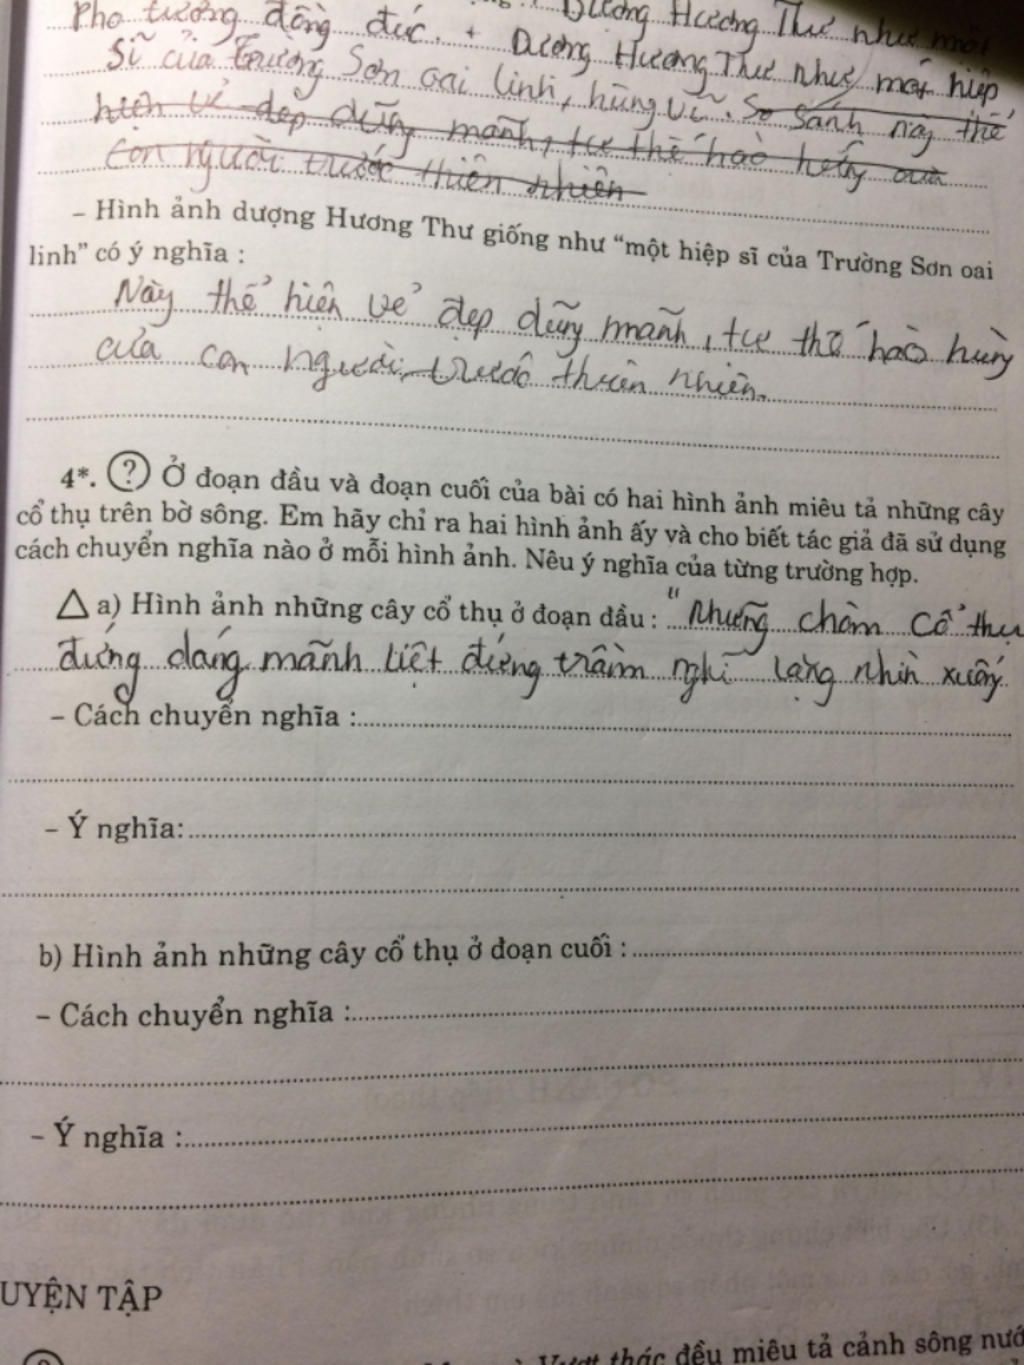 Pho tượng đồng đúc. + Dượng Hương Thư như một
Sĩ của Trường Sơn oai linh, hùng vĩ. So sánh này thể
hiện vẻ đẹp dũng mãnh, tư thế hào hùng của
con người trước thiên nhiên
– Hình ảnh dượng Hương Thư giống như “một hiệp sĩ của Trường Sơn oai
linh” có ý nghĩa :
Này thể hiện vẻ đẹp dũng mãnh, tư thế hào hùng
của con người, trước thiên nhiên.
4*. ? Ở đoạn đầu và đoạn cuối của bài có hai hình ảnh miêu tả những cây
cổ thụ trên bờ sông. Em hãy chỉ ra hai hình ảnh ấy và cho biết tác giả đã sử dụng
cách chuyển nghĩa nào ở mỗi hình ảnh. Nêu ý nghĩa của từng trường hợp.
a) Hình ảnh những cây cổ thụ ở đoạn đầu : "Những chòm cổ thụ
đứng dáng mãnh liệt đứng trầm nghĩ lặng nhìn xuống
– Cách chuyển nghĩa :
– Ý nghĩa:
b) Hình ảnh những cây cổ thụ ở đoạn cuối :
– Cách chuyển nghĩa :
– Ý nghĩa :
UYỆN TẬP
Vượt thác đều miêu tả cảnh sông nướ